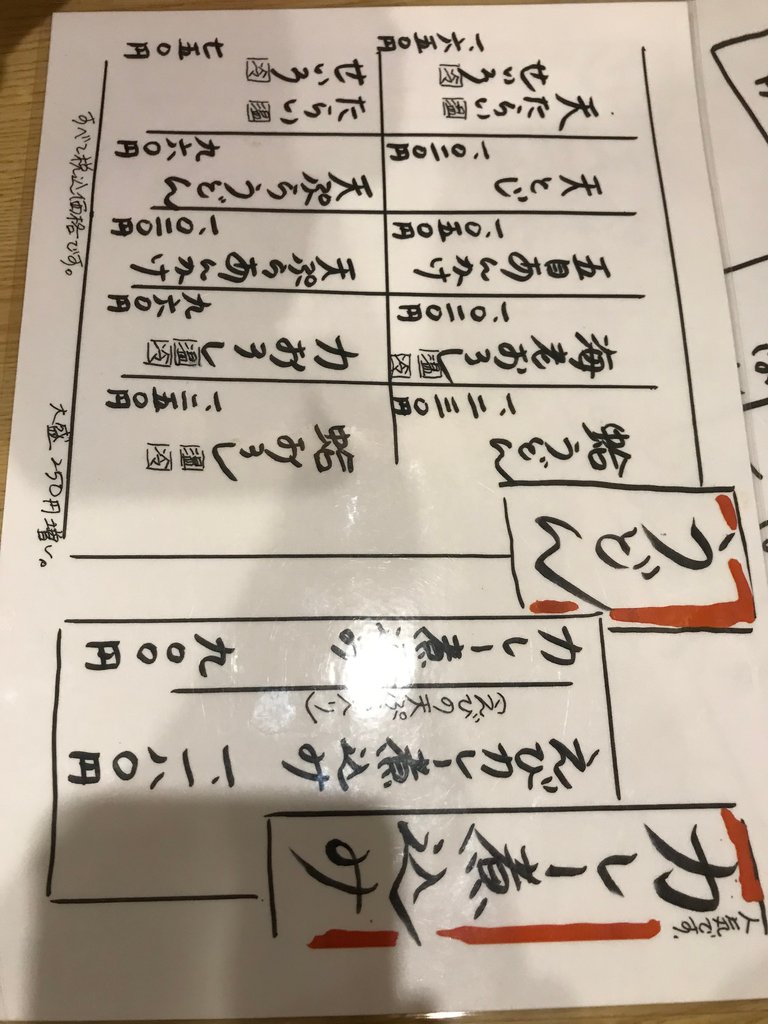 人気です
カレー煮込み
えびカレー煮込み 一、一八〇円
(えびの天ぷら入り)
カレー煮込み 九〇〇円
うどん
蛤うどん 一、二三〇円
海老おろし 温 冷 一、〇二〇円
五目あんかけ 一、〇五〇円
天とじ 一、〇二〇円
天たらい 温
せいろ 冷
一、六五〇円
蛤おろし 温 冷 一、二五〇円
力おろし 温 冷 九六〇円
天ぷらあんかけ 一、〇二〇円
天ぷらうどん 九六〇円
たらい 温
せいろ 冷
七五〇円
大盛 250円増し。
すべて税込価格です。